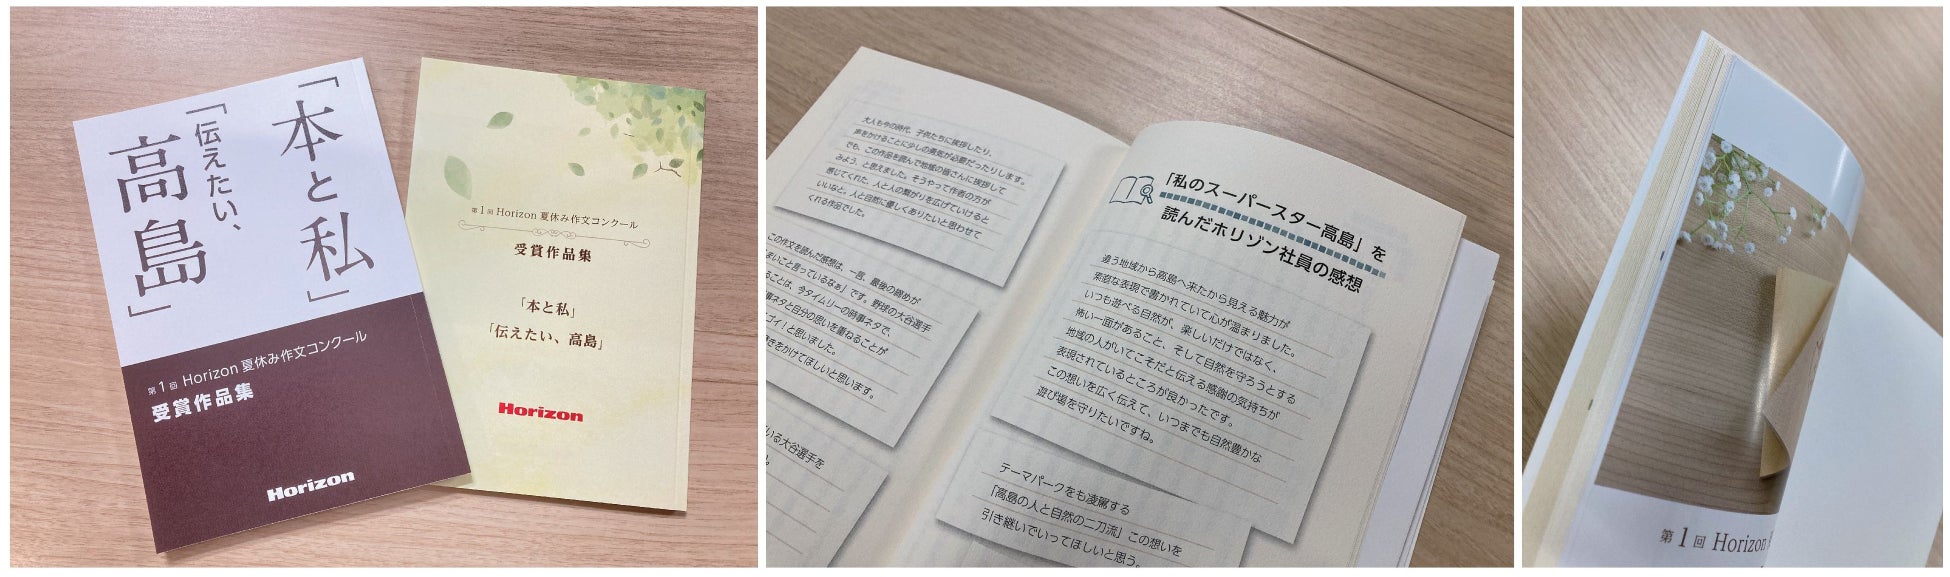 「本と私」
「伝えたい、
高島」
第1回 Horizon 夏休み作文コンクール
受賞作品集
Horizon
第1回 Horizon 夏休み作文コンクール
受賞作品集
「本と私」
「伝えたい、高島」
Horizon
大人も今の時代、子供たちに挨拶したり、
声をかけることに少しの勇気が必要だったりします。
でも、この作品を読んで地域の皆さんに挨拶して
みよう、と思えました。そうやって作者の方が
感じてくれた、人と人の繋がりを広げていけると
いいなと、人と自然に優しくありたいと思わせて
くれる作品でした。
この作文を読んだ感想は、一言、最後の締めが
まいこと言っているなぁ」です。野球の大谷選手
ることは、今タイムリーの時事ネタで、
事ネタと自分の思いを重ねることが
ゴイ!と思いました。
きをかけてほしいと思います。
いる大谷選手を
「私のスーパースター高島」を
読んだホリゾン社員の感想
違う地域から高島へ来たから見える魅力が
素直な表現で書かれていて心が温まりました。
いつも遊べる自然が、楽しいだけではなく、
怖い一面があること、そして自然を守ろうとする
地域の人がいてこそだと伝える感謝の気持ちが
表現されているところが良かったです。
この想いを広く伝えて、いつまでも自然豊かな
遊び場を守りたいですね。
テーマパークをも凌駕する
「高島の人と自然の二刀流」この想いを
引き継いでいってほしいと思う。
第1回 Horizon